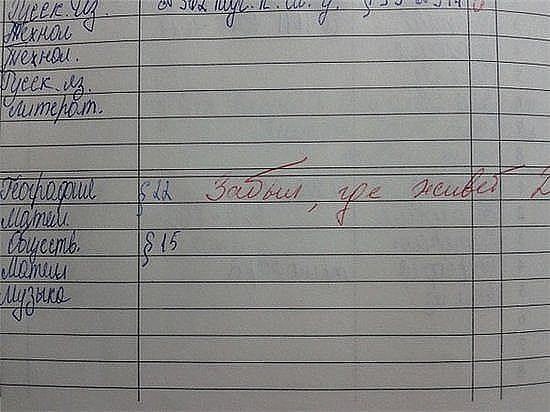 Русск. яз. § 33 №
Технол
Технол.
Русск. яз.
Литерат.
География § 22 Забыл, где живёт 2
Матем.
Обществ. § 15
Матем
Музыка